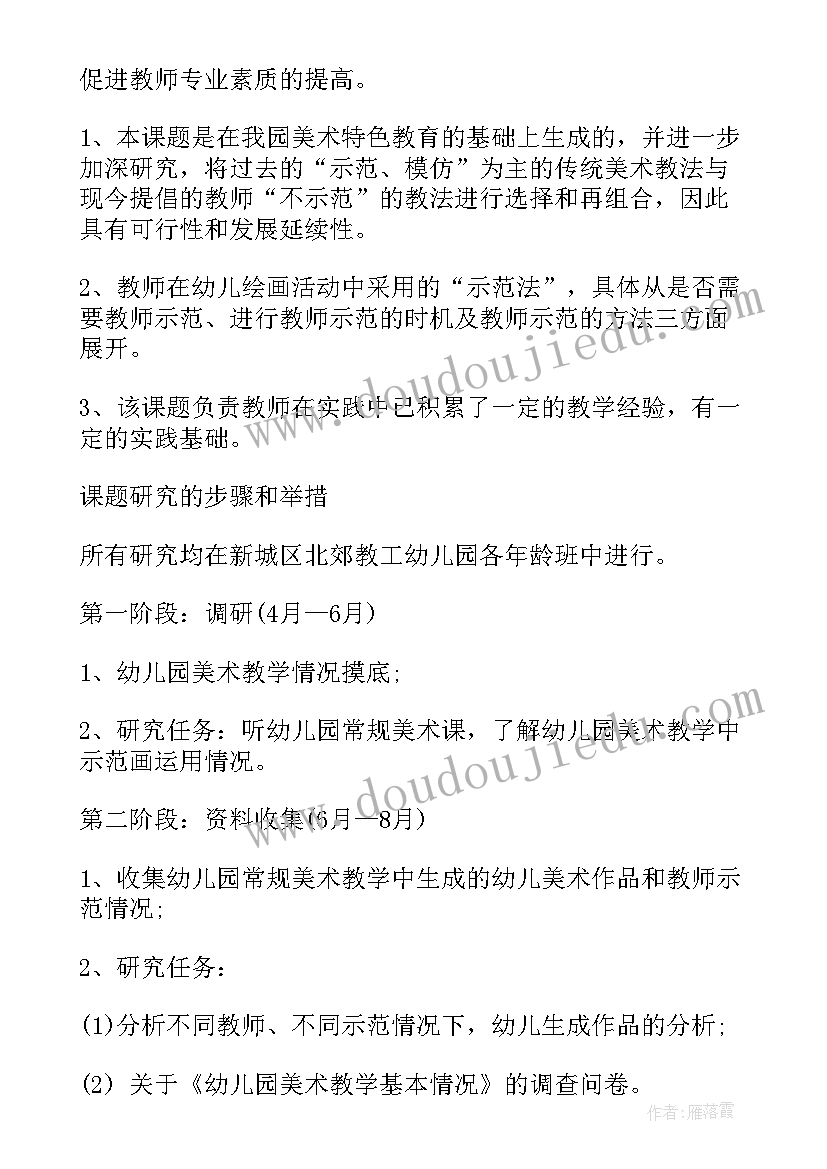 促进教师专业素质的提高。
1、本课题是在我园美术特色教育的基础上生成的，并进一步
加深研究，将过去的“示范、模仿”为主的传统美术教法与
现今提倡的教师“不示范”的教法进行选择和再组合，因此
具有可行性和发展延续性。
2、教师在幼儿绘画活动中采用的“示范法”，具体从是否需
要教师示范、进行教师示范的时机及教师示范的方法三方面
展开。
3、该课题负责教师在实践中已积累了一定的教学经验，有一
定的实践基础。
www.doudoujiedu.com
课题研究的步骤和举措
所有研究均在新城区北郊教工幼儿园各年龄班中进行。
第一阶段：调研(4月—6月)
1、幼儿园美术教学情况摸底;
2、研究任务：听幼儿园常规美术课，了解幼儿园美术教学中
示范画运用情况。
www.doudoujiedu.com
第二阶段：资料收集(6月—8月)
1、收集幼儿园常规美术教学中生成的幼儿美术作品和教师示
范情况;
2、研究任务：
(1)分析不同教师、不同示范情况下，幼儿生成作品的分析;
(2) 关于《幼儿园美术教学基本情况》的调查问卷。
作者:雁落霞